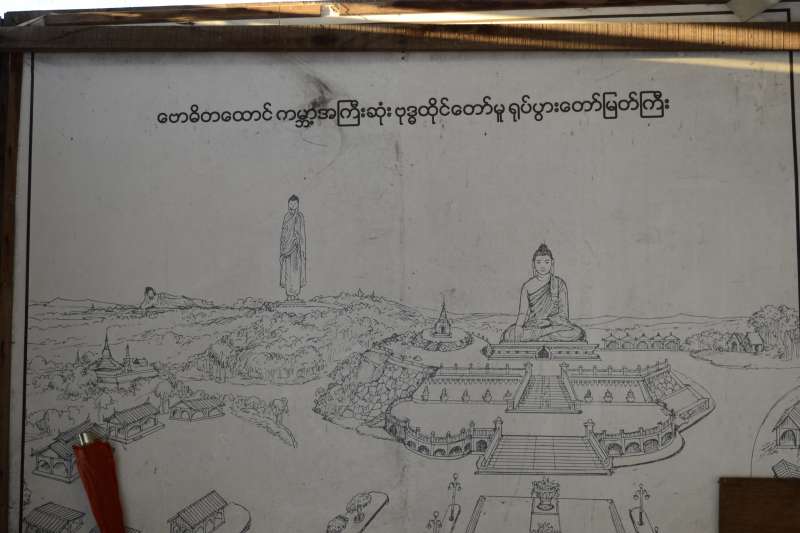 ဗောဓိတထောင် ကမ္ဘာ့အကြီးဆုံး ဗုဒ္ဓထိုင်တော်မူ ရုပ်ပွားတော်မြတ်ကြီး